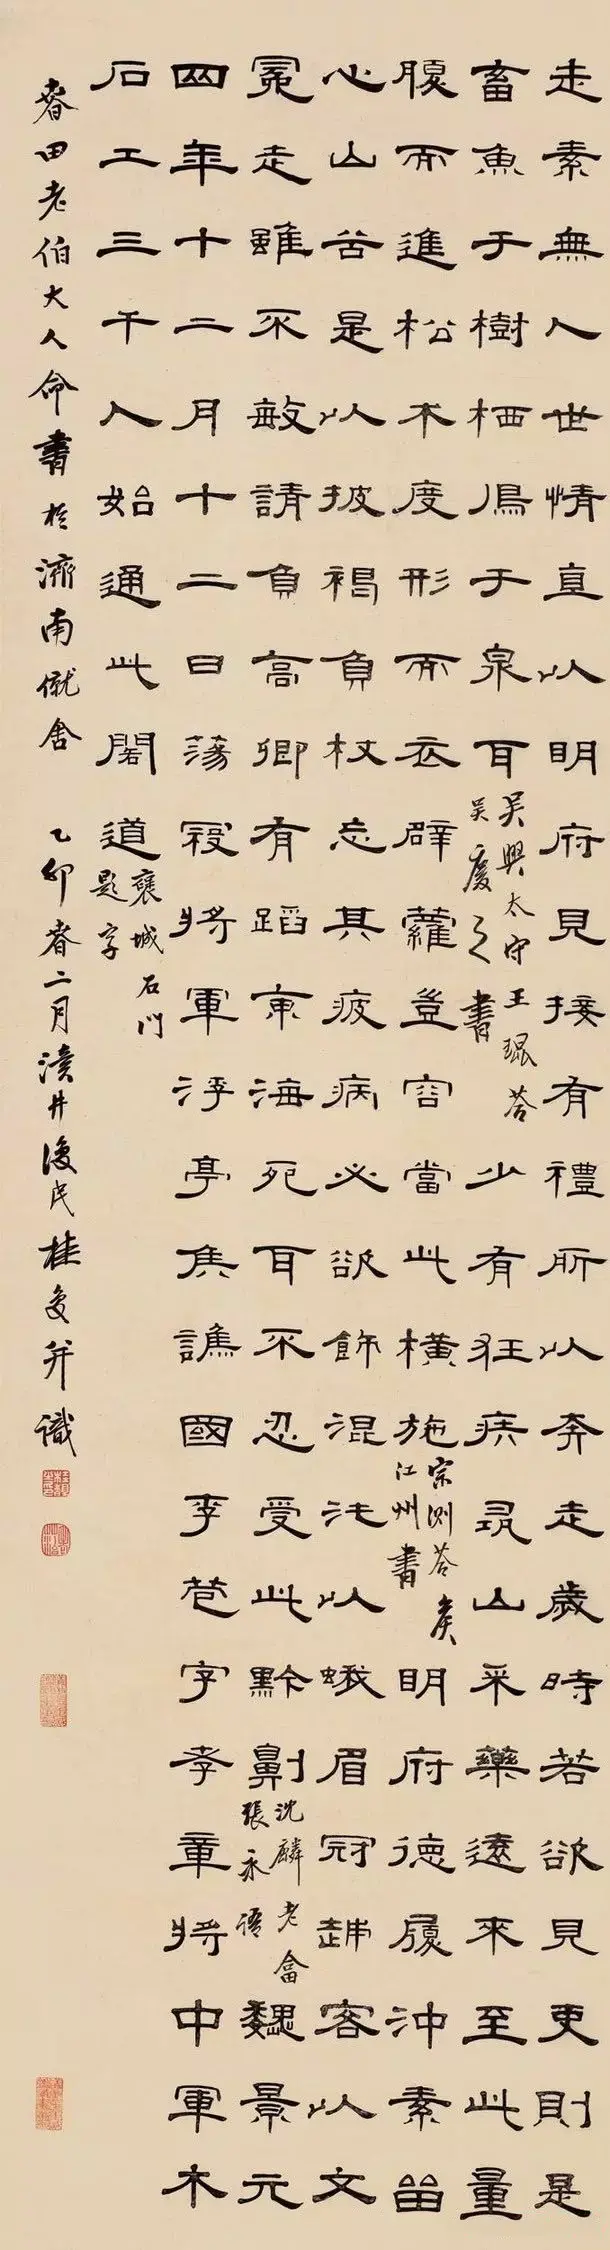 走素無人世情直以明府見接有禮所以奔走歲時若欲見吏則是
畜魚于樹栖鳥于泉耳
吳興太守王琨荅
吳慶之書
少有狂疾尋山采藥遠來至此量
腹而進松朮度形而衣薜蘿豈容當此橫施
宗測荅
江州書
明府德履沖素留
心山谷是以披褐負杖忘其疲病必欲飾混沌以蛾眉冠越客以文
冕走雖不敏請負高節有蹈東海死耳不忍受此黔劓
沈麟士畣
張永語
魏景元
四年十二月十二日蕩寇將軍浮亭侯譙國李苞字孝章將中軍木
石工三千人始通此閣道
褒城石門
題字
春田老伯大人命書於濟南僦舍 乙卯春二月瀆井復民桂馥并識